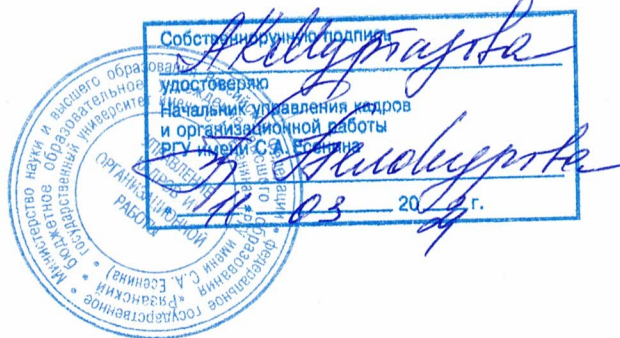 Собственноручную подпись
А.К. Муртазова
удостоверяю
Начальник управления кадров
и организационной работы
РГУ имени С.А. Есенина
11 03 20 г.
Министерство науки и высшего образования Российской Федерации * федеральное государственное
бюджетное образовательное учреждение высшего образования «Рязанский
государственный университет имени С.А. Есенина)
УПРАВЛЕНИЕ
КАДРОВ И
ОРГАНИЗАЦИОННОЙ
РАБОТЫ